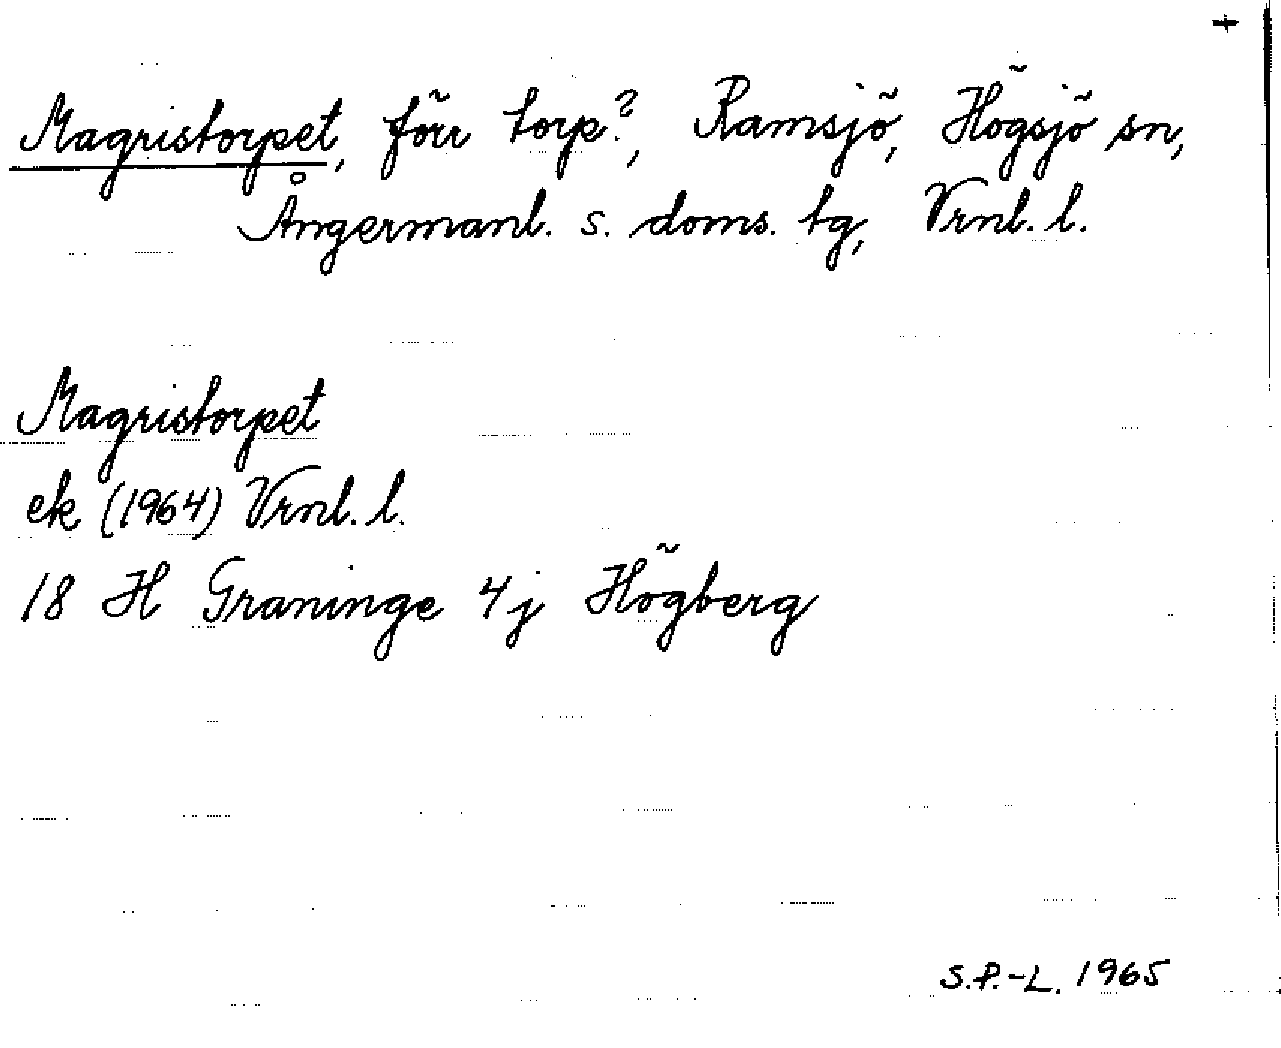 +
Magristorpet, förr torp?, Ramsjö, Högsjö sn,
Ångermanl. s. doms. tg, Vrnl. l.
Magristorpet
ek (1964) Vrnl. l.
18 H Graninge 4j Högberg
S.P.-L. 1965